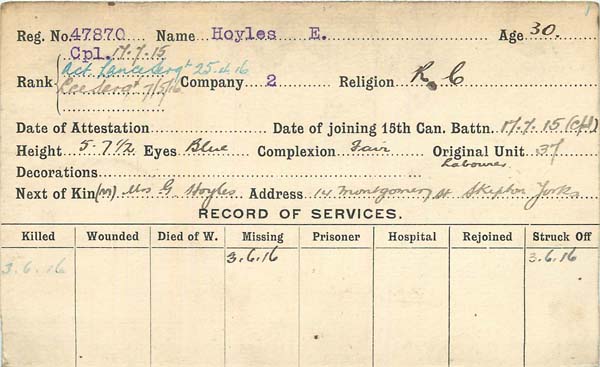 Reg. No. 47870 Name Hoyles E. Age 30.
Cpl. 17.7.15
Act Lance Sergt 25.4.16
Rank Lce Sergt 7/5/16 Company 2 Religion R.C
Date of Attestation Date of joining 15th Can. Battn. 17.7.15 (Cpl)
Height 5-7½ Eyes Blue Complexion Fair Original Unit 37
Decorations Labourer
Next of Kin (m) Mrs G Hoyles Address 14 Montgomery St Skipton Yorks
RECORD OF SERVICES.
Killed Wounded Died of W. Missing Prisoner Hospital Rejoined Struck Off
3.6.16 3.6.16 3.6.16